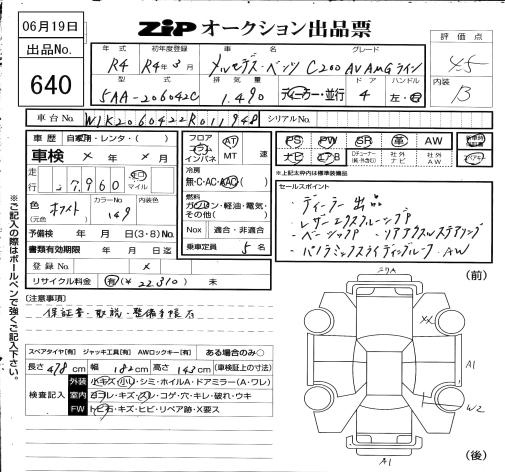 06月19日
ZiP オークション出品票
出品No.
640
評価点
4.5
内装
B
年式 初年度登録 車名 グレード
R4 R4年3月 メルセデス・ベンツ C200 AV AMGライン
型式 排気量 ドア ハンドル
5AA-206042C 1.490 ディーラー・並行 4 左・右
車台No. W1K2060422R011948 シリアルNo.
車歴 自家用・レンタ・( )
車検 × 年 × 月
走行 27,960 キロ マイル
色 (元色) ホワイト カラーNo. 149 内装色
予備検 年 月 日(3・8)No.
書類有効期限 年 月 日迄
登録No. ×
リサイクル料金 有(¥ 22,310) 未
フロア フラム インパネ
AT MT 速
冷房 無・C・AC・AAC( )
燃料 ガソリン・軽油・電気・その他( )
Nox 適合・非適合
乗車定員 5 名
PS PW SR 革 AW
ナビ エアB 社外ナビ 社外AW
※上記太枠内は標準装備品
セールスポイント
・ディーラー出品
・レザーエクスクルーシブP
・ベーシックP ・リアアクスルステアリング
・パノラミックスライディングルーフ ・AW
[注意事項]
保証書・取説・整備手帳有
スペアタイヤ[有] ジャッキ工具[有] AWロックキー[有] ある場合のみ○
長さ 478 cm 幅 182 cm 高さ 143 cm (車検証上の寸法)
検査記入
外装 小キズ・小凹・シミ・ホイルA・ドアミラー(A・ワレ)
室内 ヨゴレ・キズ・スレ・コゲ・穴・キレ・破れ・ウキ
FW トビ石・キズ・ヒビ・リペア跡・X要ス
※ご記入の際はボールペンで強くご記入下さい。
(前)
XX
A1
W2
A1
(後)